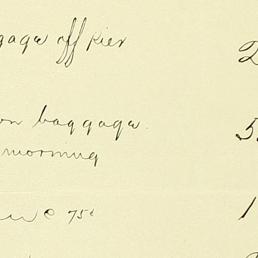 off pier 2
on baggage. 5
morning
75¢ 1